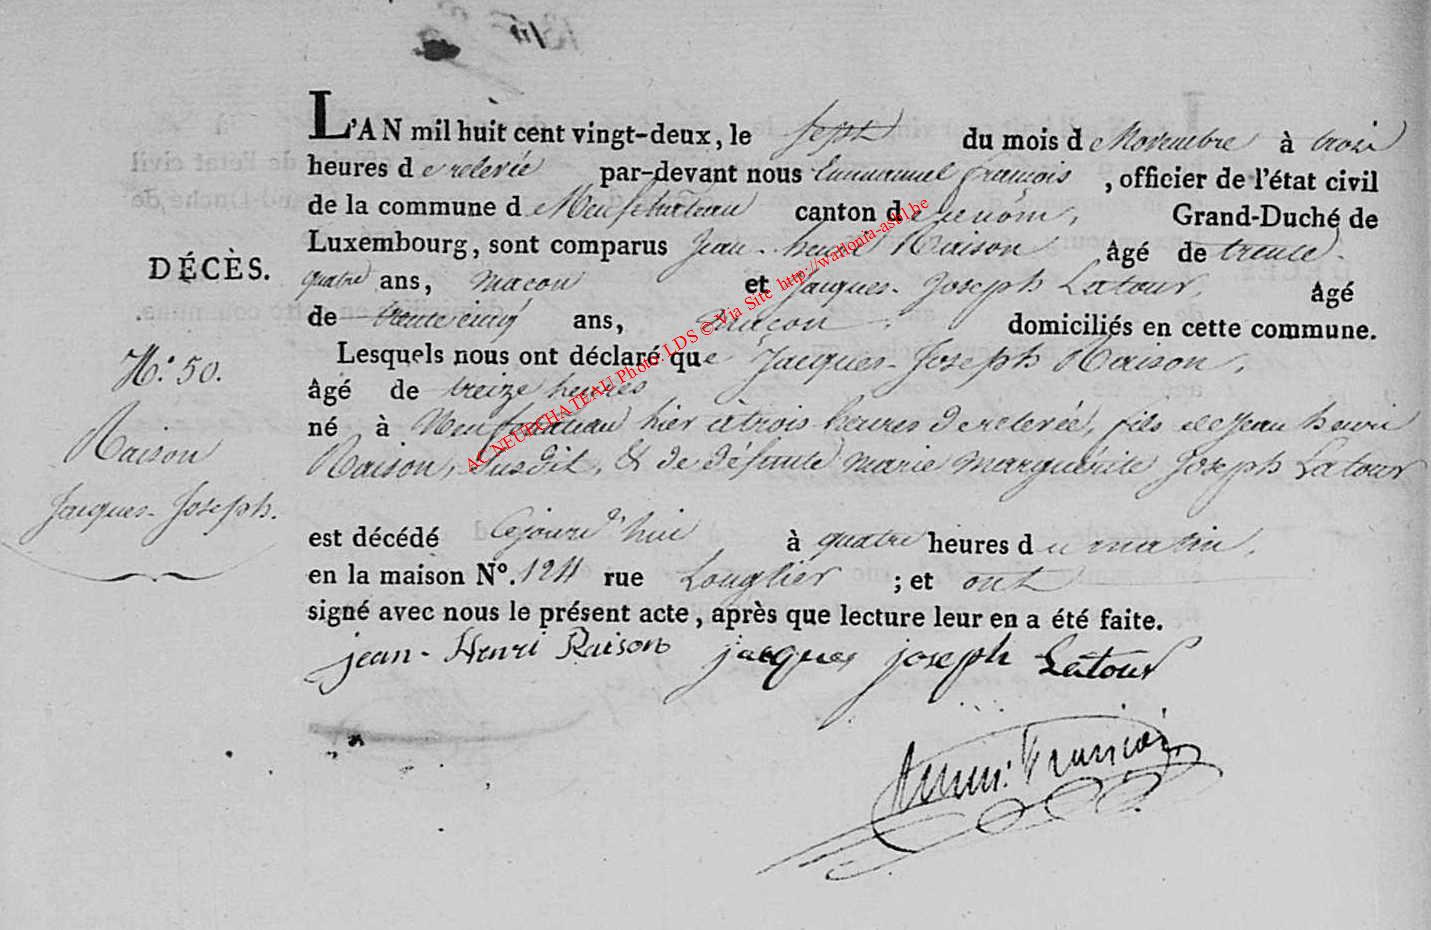 L'AN mil huit cent vingt-deux, le sept du mois de Novembre à trois
heures de relevée par-devant nous Emmanuel François, officier de l'état civil
de la commune de Neufchateau canton de ce nom, Grand-Duché de
Luxembourg, sont comparus Jean-henri Raison âgé de trente-
quatre ans, macon et Jacques-Joseph Latour, âgé
de trente cinq ans, macon, domiciliés en cette commune.
Lesquels nous ont déclaré que Jacques-Joseph Raison,
âgé de treize heures
né à Neufchateau hier à trois heures de relevée, fils de Jean henri
Raison, susdit, & de défunte marie marguerite Joseph Latour
est décédé cejourd'hui à quatre heures du matin,
en la maison No. 124 rue Longlier ; et ont
signé avec nous le présent acte, après que lecture leur en a été faite.
jean-Henri Raison jacques joseph Latour
François
DÉCÈS.
N.° 50.
Raison
Jacques-Joseph.
AC NEUFCHATEAU Photo LDS © Via Site http://wallonia-asbl.be